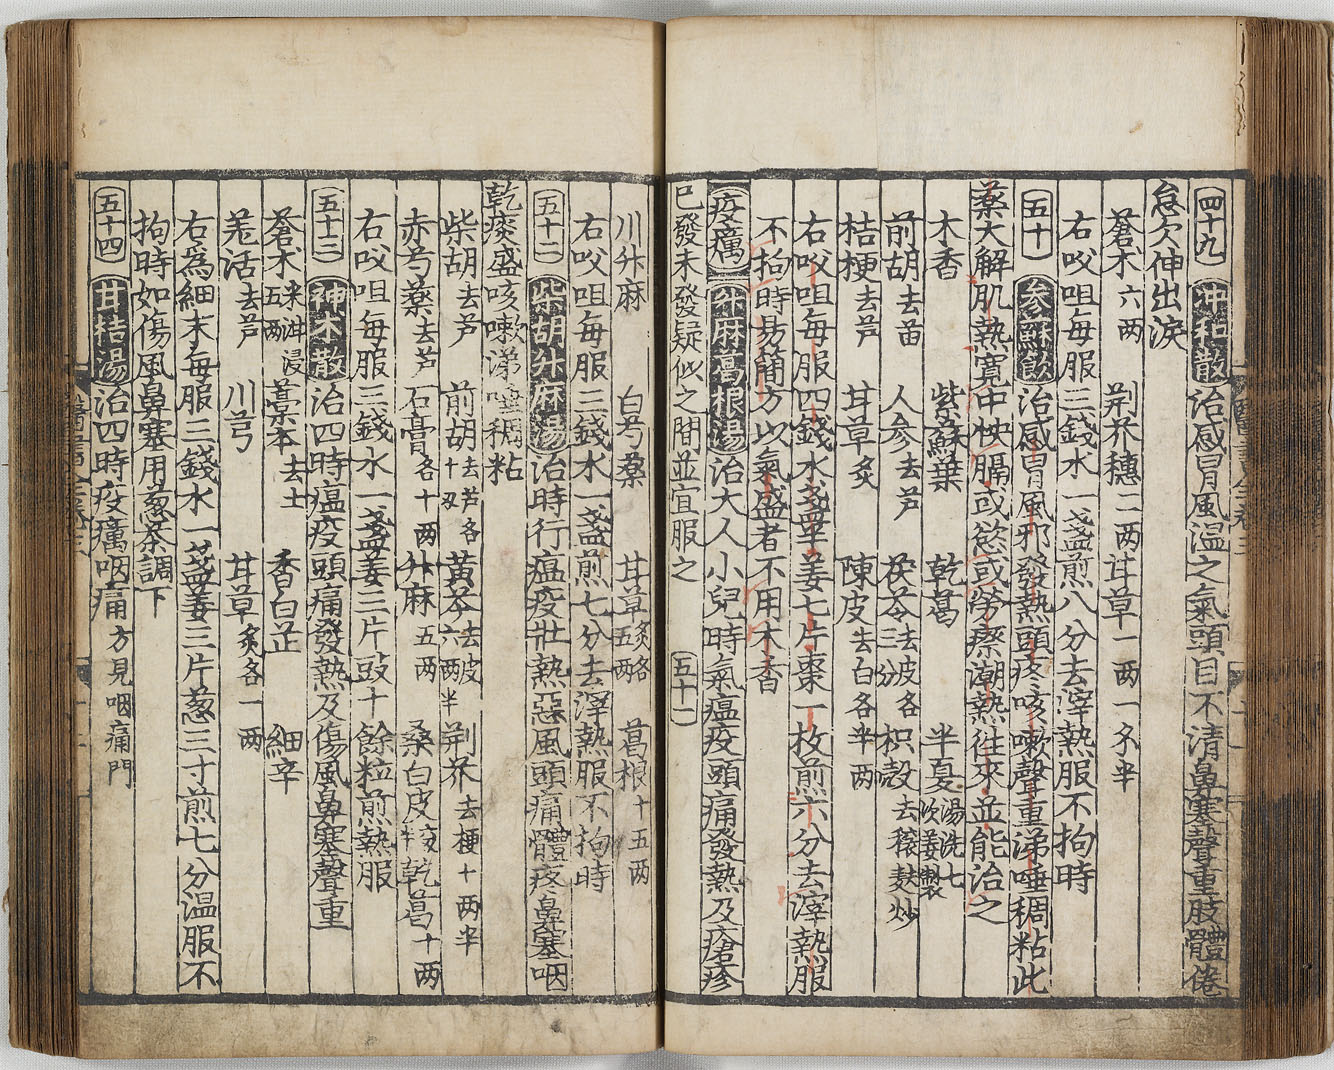 四十九 冲和散 治感冒風溫之氣頭目不清鼻塞聲重肢體倦
怠欠伸出淚
蒼术六两 荆芥穗二两 甘草一两一分半
右㕮咀每服三錢水一盞煎八分去滓熱服不拘時
五十 參蘇飲 治感冒風邪發熱頭疼咳嗽聲重涕唾稠粘此
藥大解肌熱寬中快膈或慾或勞瘵潮熱往來並能治之
木香 紫蘇葉 乾葛 半夏湯洗七次姜製
前胡去苗 人參去芦 茯苓去皮各三分 枳殼去穰麸炒
桔梗去芦 甘草炙 陳皮去白各半两
右㕮咀每服四錢水盞半姜七片棗一枚煎六分去滓熱服
不拘時易簡方以氣盛者不用木香
疫癘 升麻葛根湯 治大人小兒時氣瘟疫頭痛發熱及瘡疹
已發未發疑似之間並宜服之 五十一
川升麻 白芍藥 甘草炙各五两 葛根十五两
右㕮咀每服三錢水一盞煎七分去滓熱服不拘時
五十二 柴胡升麻湯 治時行瘟疫壯熱惡風頭痛體疼鼻塞咽
乾痰盛咳嗽涕唾稠粘
柴胡去芦 前胡去芦各十两 黄芩去皮六两半 荆芥去梗十两半
赤芍藥去芦 石膏各十两 升麻五两 桑白皮 乾葛十两
右㕮咀每服三錢水一盞姜三片豉十餘粒煎熱服
五十三 神术散 治四時瘟疫頭痛發熱及傷風鼻塞聲重
蒼术米泔浸五两 藁本去土 香白芷 細辛
羌活去芦 川芎 甘草炙各一两
右爲細末每服三錢水一盞姜三片葱三寸煎七分温服不
拘時如傷風鼻塞用葱茶調下
五十四 甘桔湯 治四時疫癘咽痛方見咽痛門